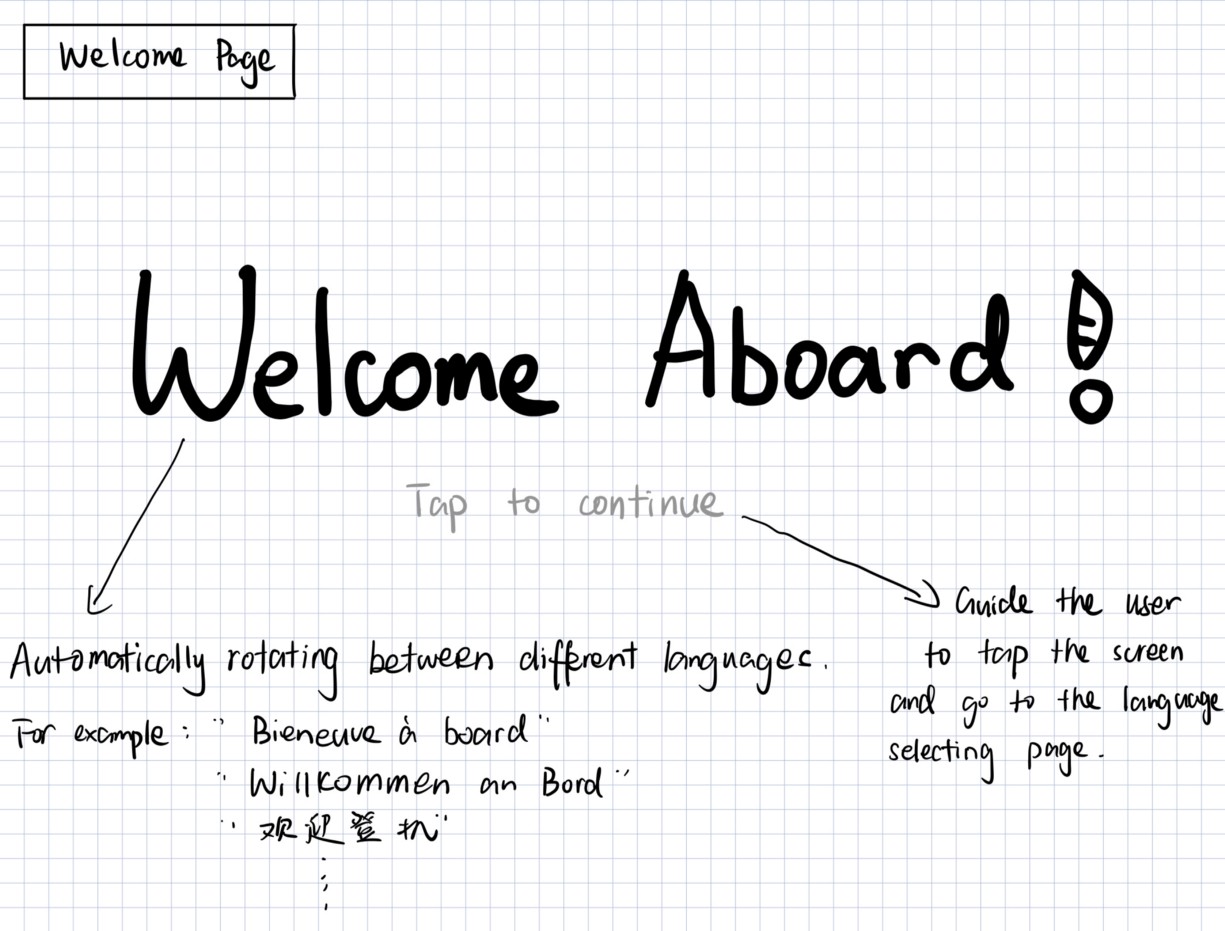 Welcome Page
Welcome Aboard!
Tap to continue
Automatically rotating between different languages.
For example: "Bieneuve à board"
"Willkommen an Bord"
"欢迎登机"
Guide the user
to tap the screen
and go to the language
selecting page.